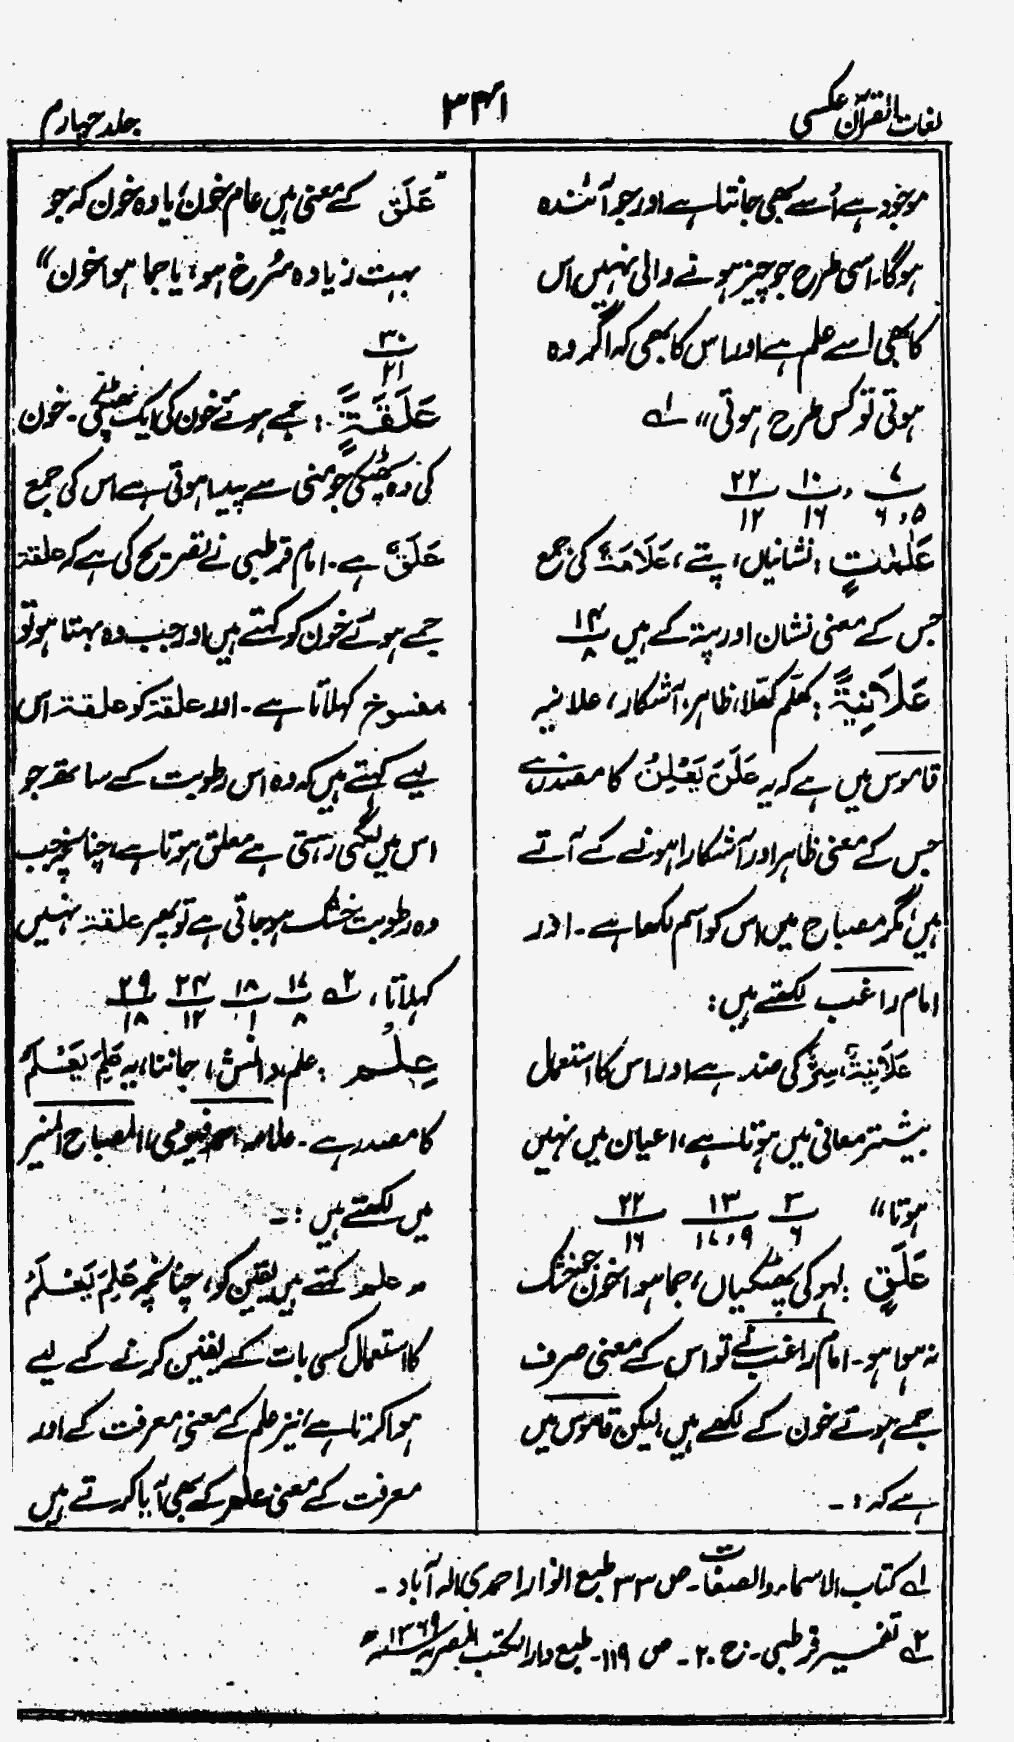 لغات القرآن عکسی
۳۴۱
جلد چہارم
موجود ہے اُسے بھی جانتا ہے اور جو آئندہ
ہوگا۔ اسی طرح جو چیز ہونے والی نہیں اس
کا بھی اسے علم ہے اور اس کا بھی کہ اگر وہ
ہوتی تو کس طرح ہوتی" لے
۷ ، ۱۰ ۲۲
۵ ، ۶ ۱۶ ۱۲
عَلٰمٰتٍ : نشانیاں، پتے، عَلَامَۃٌ کی جمع
جس کے معنی نشان اور پتہ کے ہیں ۱۴
۸
عَلَانِیَۃً : کھلّم کھلّا، ظاہر، آشکار، علانیہ
قاموس میں ہے کہ یہ عَلَنَ یَعْلِنُ کا مصدر ہے
جس کے معنی ظاہر اور آشکارا ہونے کے آتے
ہیں، مگر مصباح میں اس کو اسم لکھا ہے۔ اور
امام راغب لکھتے ہیں:
عَلَانِیَۃٌ، سِرٌّ کی ضد ہے اور اس کا استعمال
بیشتر معانی میں ہوتا ہے، اعیان میں نہیں
ہوتا" ۳ ۱۳ ۲۲
۶ ۹ ، ۱۷ ۱۶
عَلَقٍ : لہو کی پھٹکیاں، جما ہوا خون جو خشک
نہ ہوا ہو۔ امام راغب نے تو اس کے معنی صرف
جمے ہوئے خون کے لکھے ہیں، لیکن قاموس میں
ہے کہ :۔
"عَلَق کے معنی ہیں عام خون، یا وہ خون کہ جو
بہت زیادہ سُرخ ہو، یا جما ہوا خون"
۳۰
۲۱
عَلَقَۃٍ : جمے ہوئے خون کی ایک پھٹکی۔ خون
کی وہ پھٹکی جو منی سے پیدا ہوتی ہے اس کی جمع
عَلَقٌ ہے۔ امام قرطبی نے تصریح کی ہے کہ علقۃ
جمے ہوئے خون کو کہتے ہیں اور جب وہ بہتا ہو تو
مفسوخ کہلاتا ہے۔ اور علقۃ کو علقۃ اس
لیے کہتے ہیں کہ وہ اس رطوبت کے ساتھ جو
اس میں لگی رہتی ہے معلق ہوتا ہے، چنانچہ جب
وہ رطوبت خشک ہو جاتی ہے تو پھر علقۃ نہیں
کہلاتا، ۲ے ۱۷ ۱۸ ۲۴ ۲۹
۸ ۱ ۱۲ ۱۸
عِلْمٌ : علم، دانش، جاننا، یہ عَلِمَ یَعْلَمُ
کا مصدر ہے۔ علامہ فیومی، المصباح المنیر
میں لکھتے ہیں :۔
" علم کہتے ہیں یقین کو، چنانچہ عَلِمَ یَعْلَمُ
کا استعمال کسی بات کے یقین کرنے کے لیے
ہوا کرتا ہے، نیز علم کے معنی معرفت کے اور
معرفت کے معنی علم کے بھی آیا کرتے ہیں
۱ے کتاب الاسماء والصفات۔ ص ۳۳ طبع انوار احمدی الہ آباد۔
۲ے تفسیر قرطبی۔ ج ۲۰۔ ص ۱۱۹۔ طبع دار الکتب المصریہ سنہ ۱۳۶۹ھ